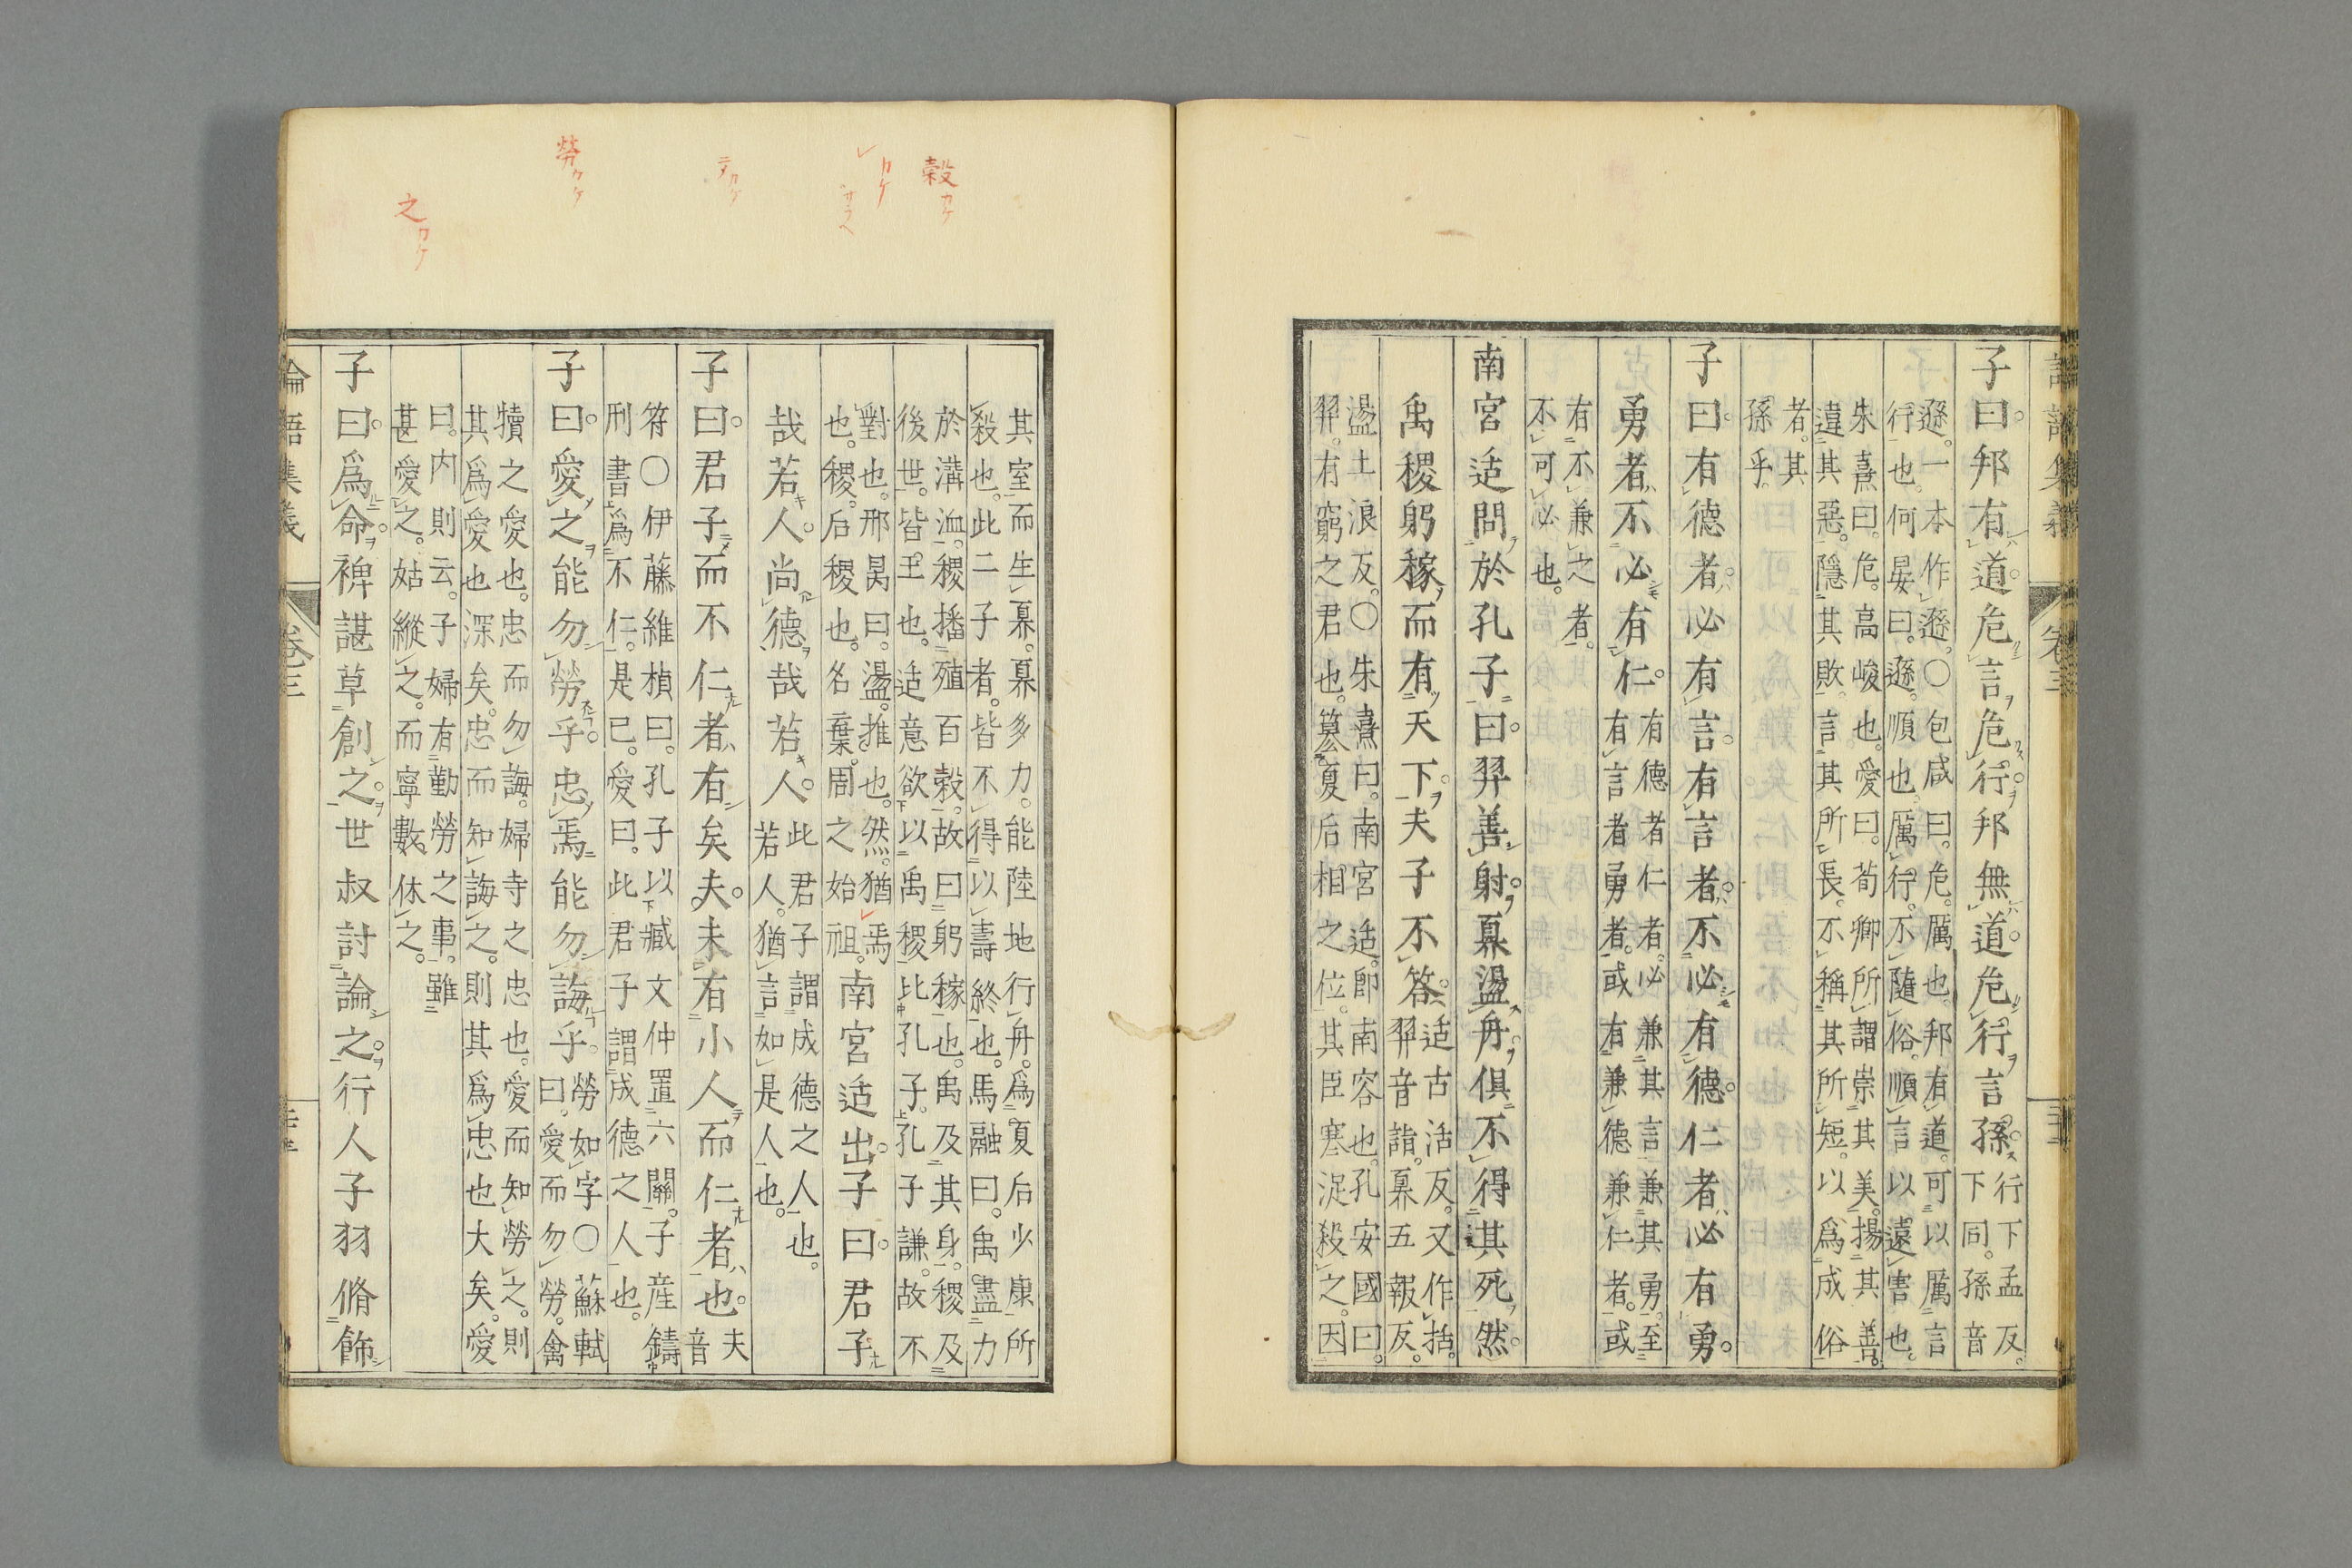 子曰。邦有道。危言危行。邦無道。危行言孫。行下孟反。
下同。孫音
遜。一本作遜。〇包咸曰。危。厲也。邦有道。可以厲言
行也。何晏曰。遜。順也。厲行。不隨俗。順言以遠害也。
朱熹曰。危。高峻也。愛曰。荀卿所謂崇其美。揚其善。
違其惡。隱其敗。言其所長。不稱其所短。以爲成俗
者。其
孫乎。
子曰。有德者。必有言。有言者。不必有德。仁者必有勇。
勇者不必有仁。有德者仁者。必兼其言兼其勇。至
有言者勇者。或有兼德兼仁者。或
有不兼之者。
不可必也。
南宮适問於孔子曰。羿善射。奡盪舟。俱不得其死然。
禹稷躬稼而有天下。夫子不答。适古活反。又作括。
羿音詣。奡五報反。
盪土浪反。〇朱熹曰。南宮适。卽南容也。孔安國曰。
羿。有窮之君也。簒夏后相之位。其臣寒浞殺之。因
其室而生奡。奡多力。能陸地行舟。爲夏后少康所
殺也。此二子者。皆不得以壽終也。馬融曰。禹盡力
於溝洫。稷播殖百穀。故曰躬稼也。禹及其身。稷及
後世。皆王也。适意欲以禹稷比孔子。孔子謙。故不
對也。邢昺曰。盪。推也。然。猶焉
也。稷。后稷也。名棄。周之始祖。南宮适出。子曰。君子
哉若人。尚德哉若人。此君子謂成德之人也。
若人。猶言如是人也。
子曰。君子而不仁者有矣夫。未有小人而仁者也。夫
音
符〇伊藤維楨曰。孔子以臧文仲置六關。子産鑄
刑書爲不仁。是已。愛曰。此君子謂成德之人也。
子曰。愛之能勿勞乎。忠焉能勿誨乎。勞如字〇蘇軾
曰。愛而勿勞。禽
犢之愛也。忠而勿誨。婦寺之忠也。愛而知勞之。則
其爲愛也深矣。忠而知誨之。則其爲忠也大矣。愛
曰。内則云。子婦有勤勞之事。雖
甚愛之。姑縱之。而寧數休之。
子曰。爲命。裨諶草創之。世叔討論之。行人子羽脩飾
論語集義
卷三
穀カケ
カケ
テカケ
勞カケ
之カケ